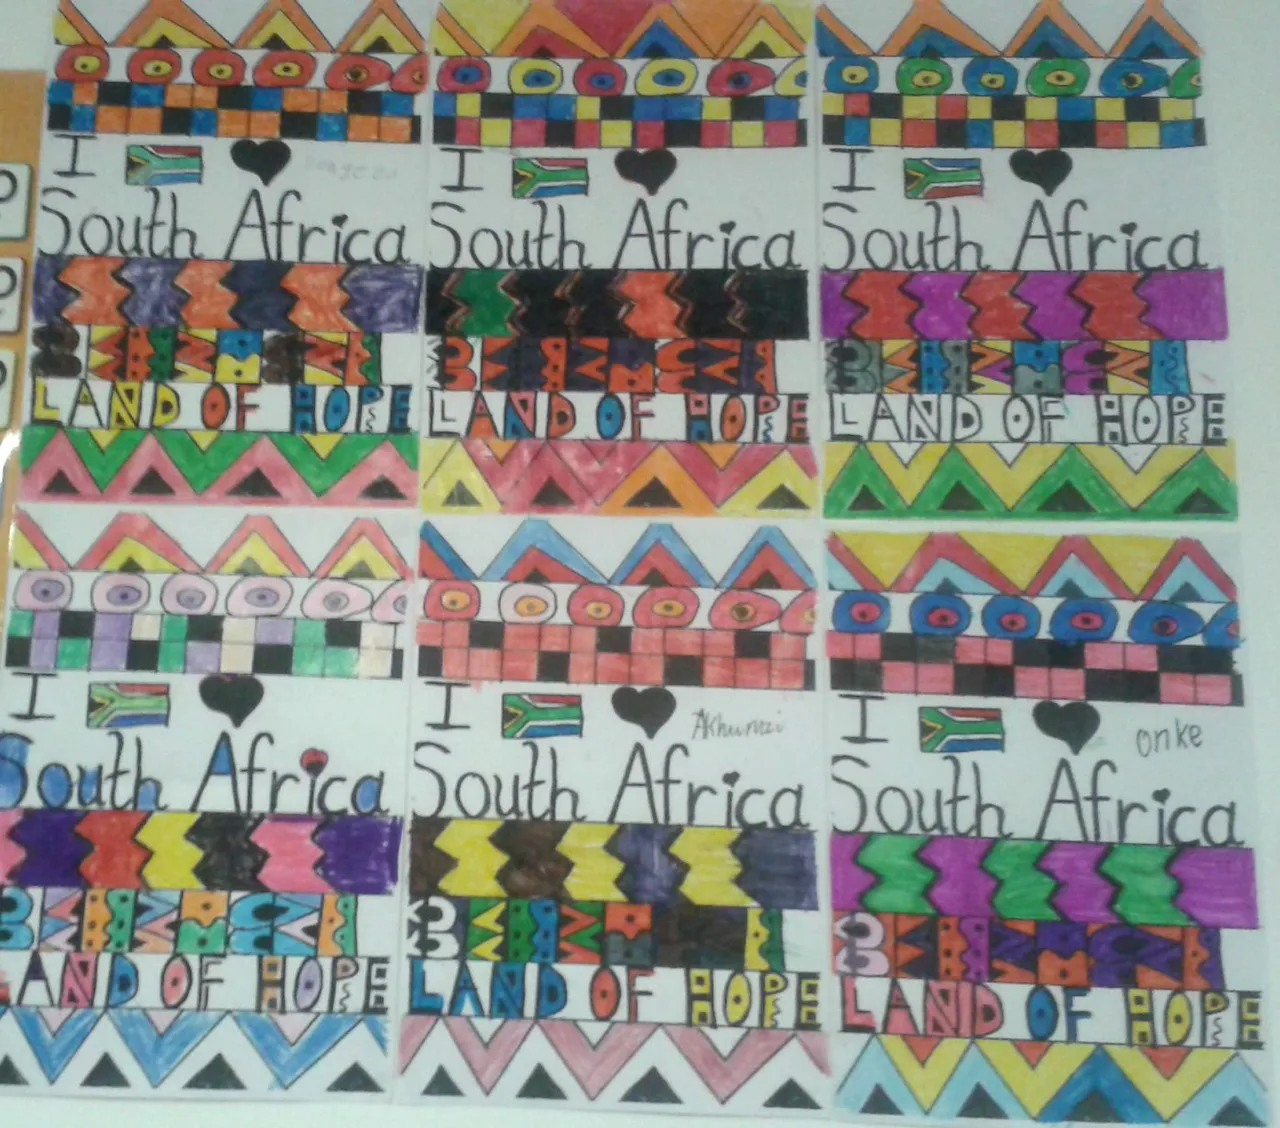 I
South Africa
LAND OF HOPE
I
South Africa
LAND OF HOPE
I
South Africa
LAND OF HOPE
I
South Africa
LAND OF HOPE
I Akhumzi
South Africa
LAND OF HOPE
I onke
South Africa
LAND OF HOPE